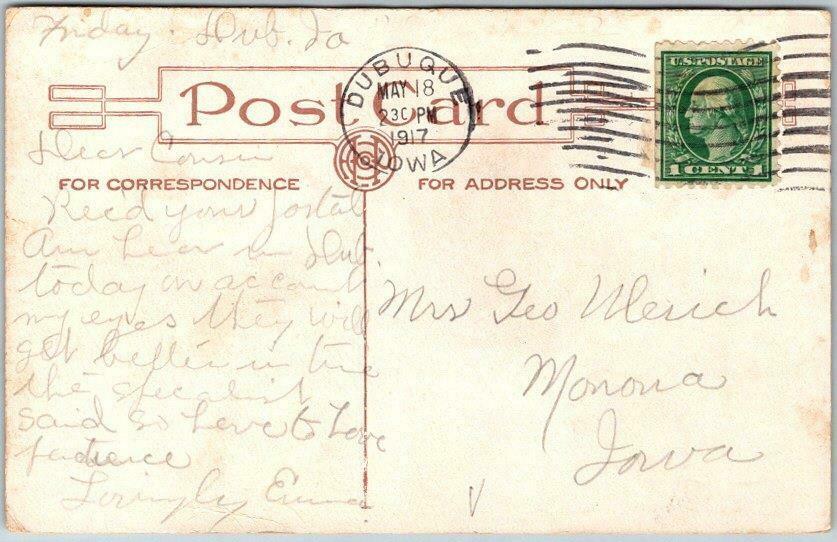 Friday. Dub. Ia
DUBUQUE
MAY 18
230 PM
1917
IOWA
U.S. POSTAGE
1 CENT 1
Post Card
Dear Cousin
FOR CORRESPONDENCE
FOR ADDRESS ONLY
Rec'd your postal
Am hear in Dub.
today on account
my eyes they will
get better in time
the specalist
said so have to have
patience
Lovingly Emma
Mrs Geo
Monona
Iowa